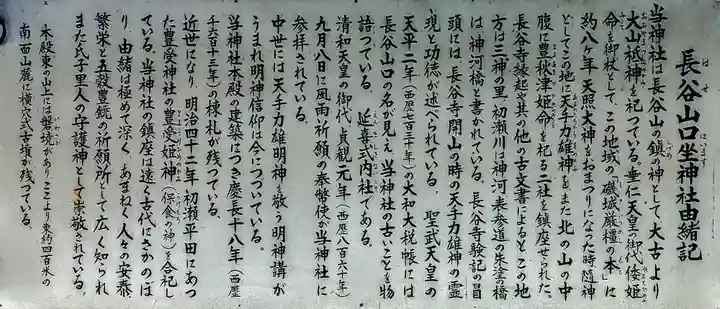 長谷山口坐神社由緒記
当神社は長谷山の鎮の神として、大古より
大山祇神を祀つている。垂仁天皇の御代倭姫
命を御杖として、この地域の「磯城嚴橿の本」に
約八ヶ年天照大神をおまつりになった時、随神
としてこの地に天手力雄神をまた北の山の中
腹に豊秋津姫命を祀る二社を鎮座せられた。
長谷寺縁起文其の他の古文書によると、この地
方は三神の里、初瀬川は神河、表参道の朱塗の橋
は、神河橋と書かれている。長谷寺験記の冒
頭には、長谷寺開山の時の天手力雄神の霊
現と功徳が述べられている。聖武天皇の
天平二年（西歴七百三十年）の大和大税帳には
長谷山口の名が見え当神社の古いことを物
語つている。延喜式内社である。
清和天皇の御代、貞観元年（西歴八百六十年）
九月八日に風雨祈願の奉幣使が当神社に
参拝されている。
中世には天手力雄明神を敬う明神講が
うまれ明神信仰は今につづいている。
当神社本殿の建築につき慶長十八年（西歴
千六百十三年）の棟札が残つている。
近世になり、明治四十二年初瀬平田にあつ
た豊受神社の豊受姫神（保食の神）を合祀し
ている。当神社の鎮座は遠く古代にさかのぼ
り、由緒は極めて深く、あまねく人々の安泰、
繁栄と五穀豊饒の祈願所として広く知られ
また氏子里人の守護神として崇敬されている。
本殿東の山上には磐境があり、ここより東約四百米の
南面山麓に横穴式古墳が残つている。